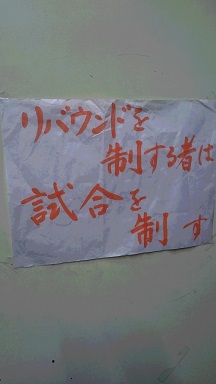 リバウンドを
制する者は
試合を
制す